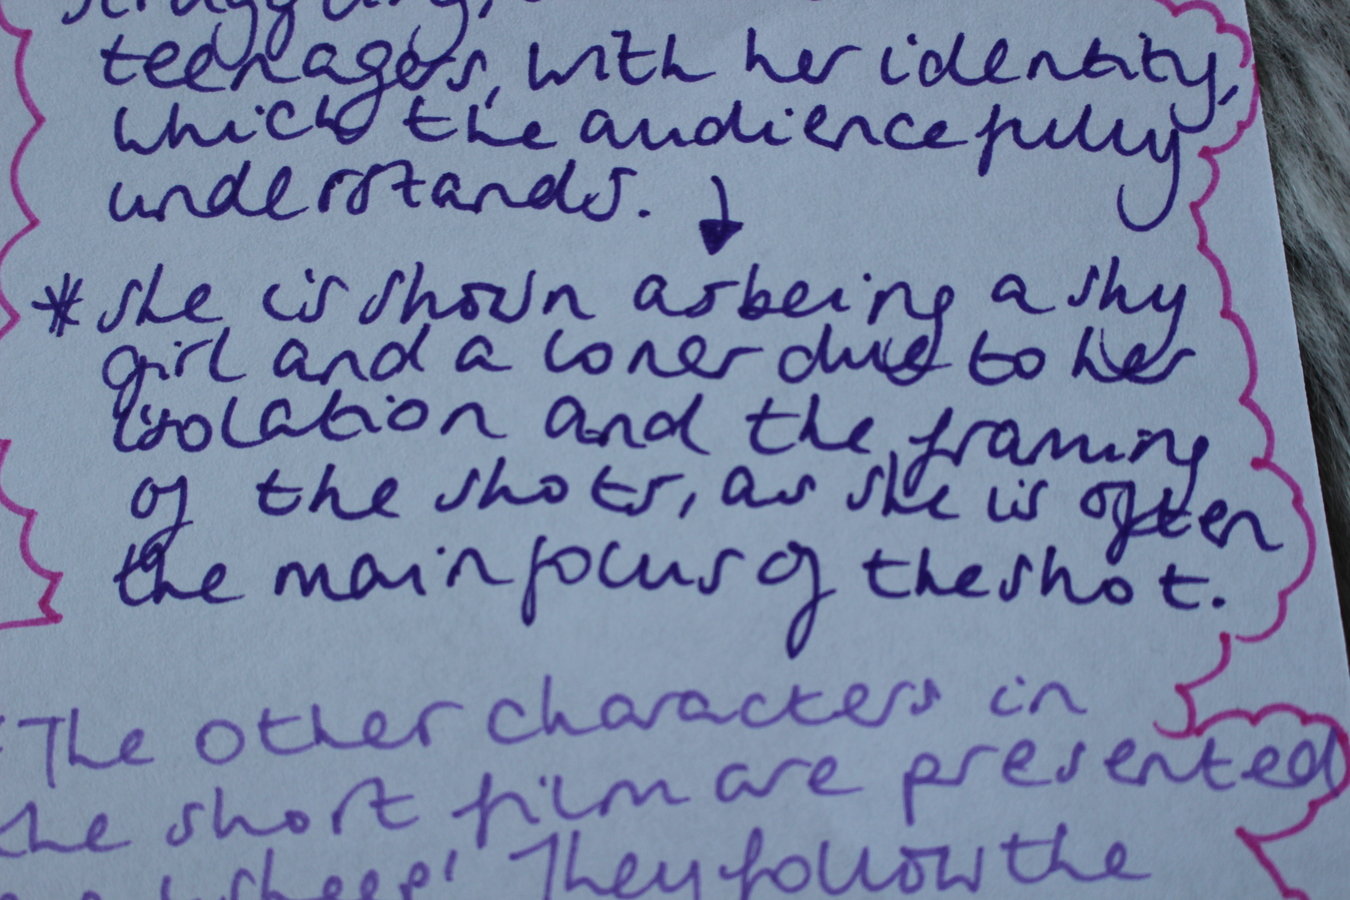 struggling,
teenagers, with her identity,
which the audience fully
understands.
* she is shown as being a shy
girl and a loner due to her
isolation and the framing
of the shots, as she is often
the main focus of the shot.
The other characters in
the short film are presented
sheep' They follow the